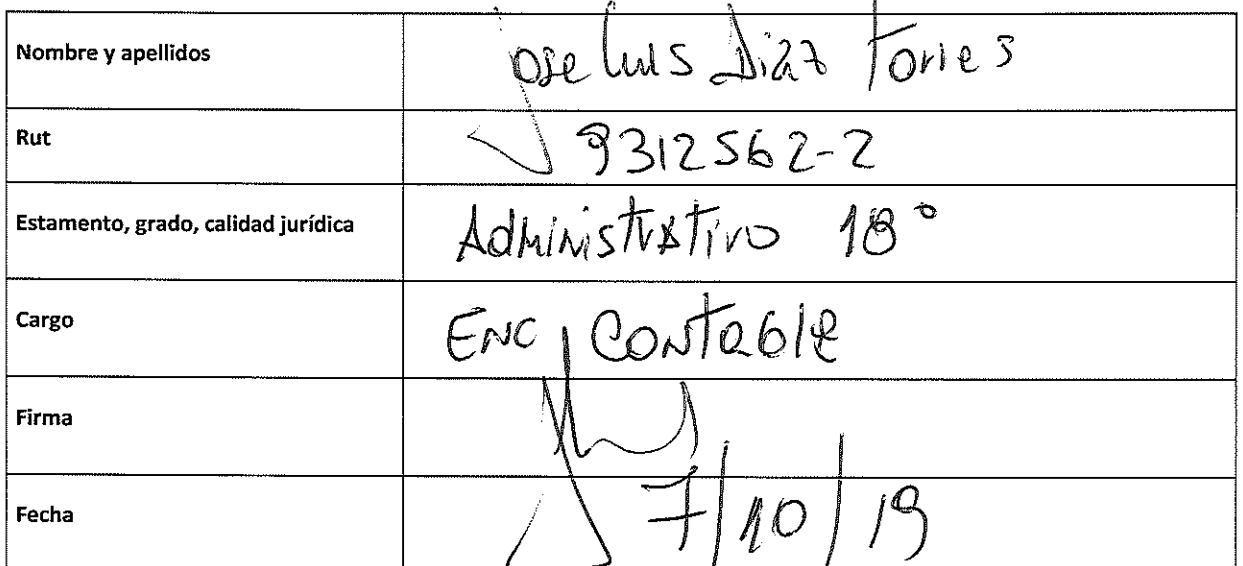 Nombre y apellidos Jose Luis Diaz Torres
Rut 9312562-2
Estamento, grado, calidad jurídica Administrativo 18°
Cargo Enc Contable
Firma
Fecha 7/10/19